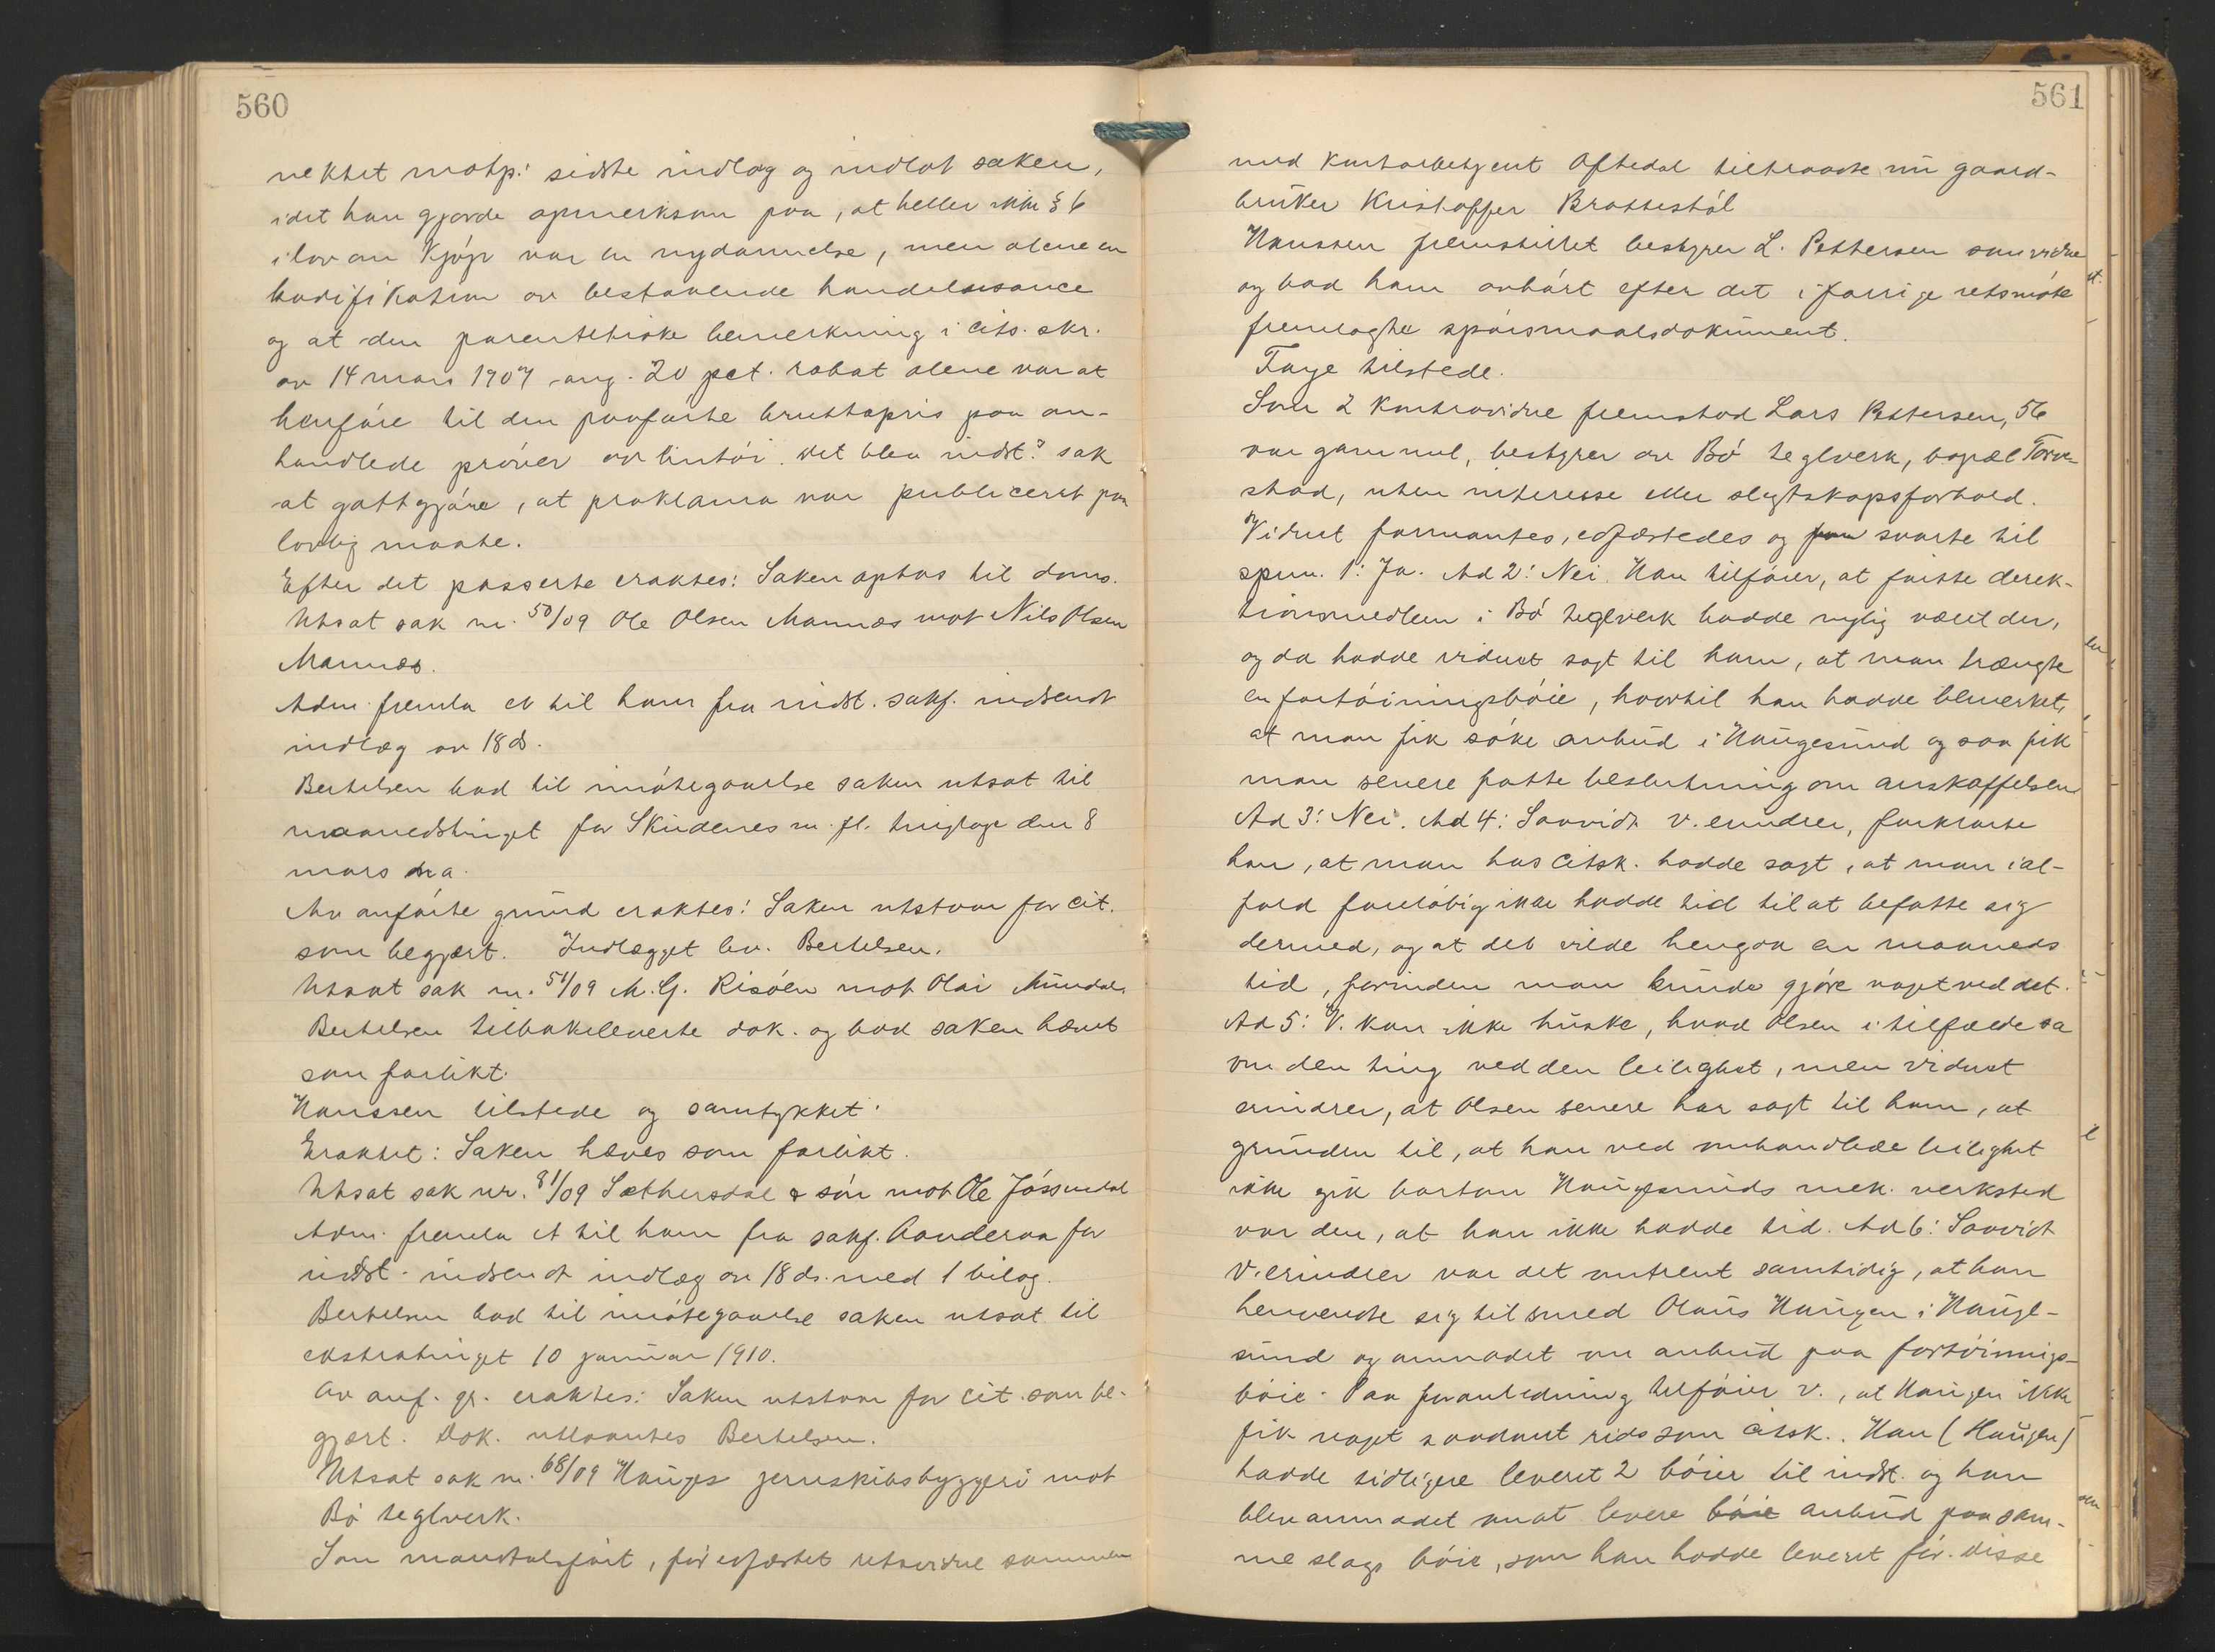 560
nektet motp.' sidste indlæg og indlot saken,
idet han gjorde opmerksom paa, at heller ikke § 6
i lov om kjøp var en nydannelse, men alene en
kodifikation av bestaaende handelsusance
og at den parentetiske bemerkning i cits. skr.
av 14 mars 1907 ang. 20 pct. rabat alene var at
henføre til den paaførte bruttopris paa om-
handlede prøver av lintøi. Det blev indst.s sak
at godtgjøre, at proklama var publiceret paa
lovlig maate.
Efter det passerte eraktes: Saken optas til doms.
Utsat sak nr. 50/09 Ole Olsen Mannes mot Nils Olsen
Mannes.
Adm. fremla et til ham fra indst. sakf. indsendt
indlæg av 18 ds.
Bertelsen bad til imøtegaaelse saken utsat til
maanedstinget for Skudenes m. fl. tinglage den 8
mars n. a.
Av anførte grund eraktes: Saken utstaar for cit.
som begjært. Indlægget lev. Bertelsen.
Utsat sak nr. 51/09 M. G. Risøen mot Olai Mundal.
Bertelsen tilbakeleverte dok. og bad saken hævet
som forlikt.
Hanssen tilstede og samtykket.
Eraktet: Saken hæves som forlikt.
Utsat sak nr. 81/09 Sæthersdal & søn mot Ole Jøssendal
Adm. fremla et til ham fra sakf. Aanderaa for
indst. indsendt indlæg av 18 ds. med 1 bilag.
Bertelsen bad til imøtegaaelse saken utsat til
ekstratinget 10 januar 1910.
Av anf. gr. eraktes: Saken utstaar for cit. som be-
gjært. Dok. utlaantes Bertelsen.
Utsat sak nr. 68/09 Hauges jernskibsbyggeri mot
Bø teglverk.
Som mandtalsført, før edfæstet retsvidne sammen
561
med kontorbetjent Aftedal tiltraadte nu gaard-
bruker Kristoffer Brattestøl
Hanssen fremstillet bestyrer L. Pettersen som vidne
og bad ham avhørt efter det i forrige retsmøte
fremlagte spørsmaalsdokument.
Faye tilstede.
Som 2 kontravidne fremstod Lars Pettersen, 56
aar gammel, bestyrer av Bø teglverk, bopæl Torve-
stad, uten interesse eller slegtskapsforhold.
Vidnet formantes, edfæstedes og svarte til
spm. 1: Ja. Ad 2: Nei. Han tilføier, at første direk-
tionsmedlem i Bø teglverk hadde nylig været der,
og da hadde vidnet sagt til ham, at man trængte
en fortøiningsbøie, hvortil han hadde bemerket,
at man fik søke anbud i Haugesund og saa fik
man senere fatte beslutning om anskaffelsen
Ad 3: Nei. Ad 4: Saavidt v. erindrer, forklarte
han, at man hos citsk. hadde sagt, at man ial-
fald foreløbig ikke hadde tid til at befatte sig
dermed, og at det vilde hengaa en maaneds
tid, forinden man kunde gjøre noget ved det.
Ad 5: V. kan ikke huske, hvad Olsen i tilfælde sa
om den ting ved den leilighet, men vidnet
erindrer, at Olsen senere har sagt til ham, at
grunden til, at han ved omhandlede leilighet
ikke gik bortom Haugesunds mek. verksted
var den, at han ikke hadde tid. Ad 6: Saavidt
v. erindrer var det omtrent samtidig, at han
henvendte sig til smed Olaus Haugen i Hauge-
sund og anmodet om anbud paa fortøinings-
bøie. Paa foranledning tilføier v., at Haugen ikke
fik noget saadant rids som citsk. Han (Haugen)
hadde tidligere leveret 2 bøier til indst. og han
blev anmodet om at levere bøie anbud paa sam-
me slags bøie, som han hadde leveret før. Disse